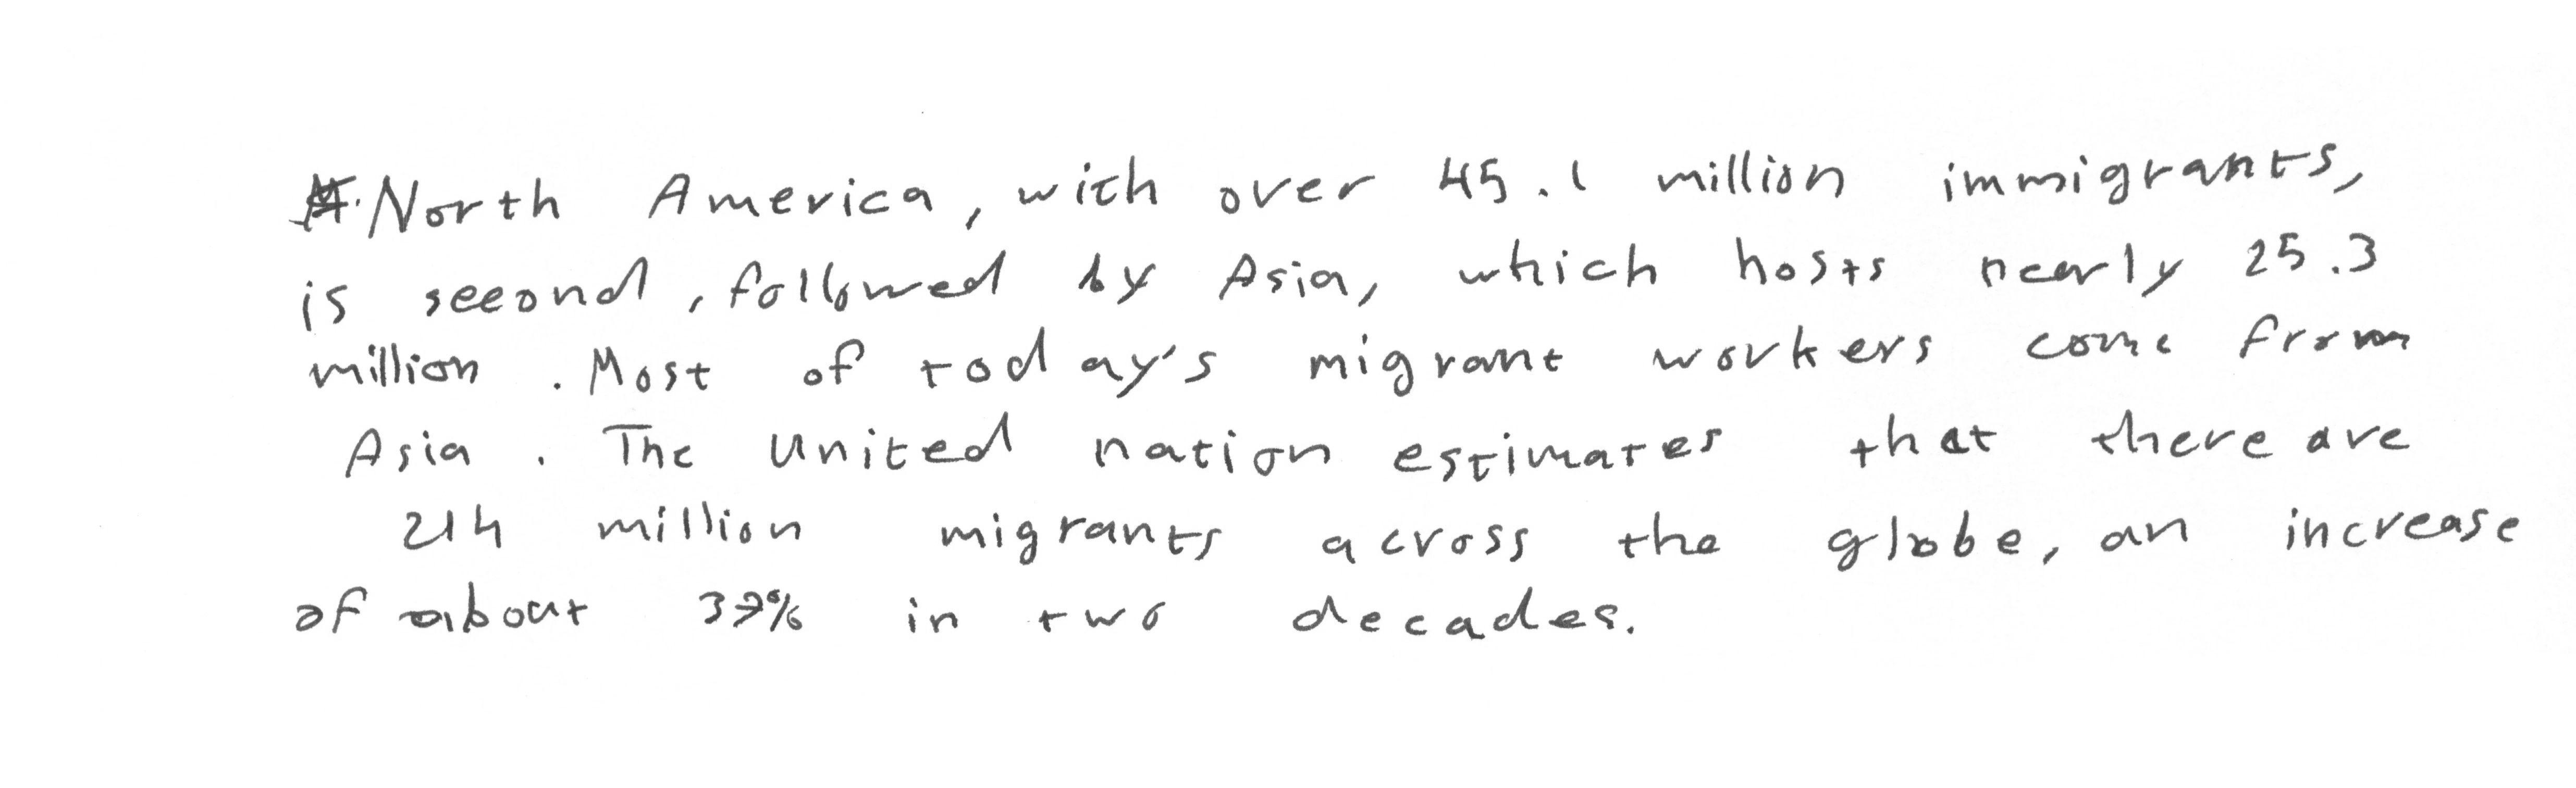 North America, with over 45.1 million immigrants,
is second, followed by Asia, which hosts nearly 25.3
million. Most of today's migrant workers come from
Asia. The united nation estimates that there are
214 million migrants across the globe, an increase
of about 37% in two decades.